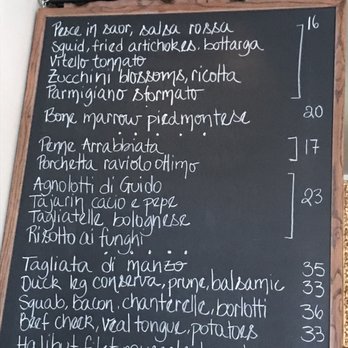 Pesce in saor, salsa rossa
Squid, fried artichokes, bottarga
Vitello tonnato
Zucchini blossoms, ricotta
Parmigiano sformato
16
Bone marrow piedmontese 20
Penne Arrabbiata
Porchetta raviolo ottimo
17
Agnolotti di Guido
Tajarin cacio e pepe
Tagliatelle bolognese
Risotto ai funghi
23
Tagliata di manzo 35
Duck leg conserva, prune, balsamic 33
Squab, bacon, chanterelle, borlotti 36
Beef cheek, veal tongue, potatoes 33
Halibut